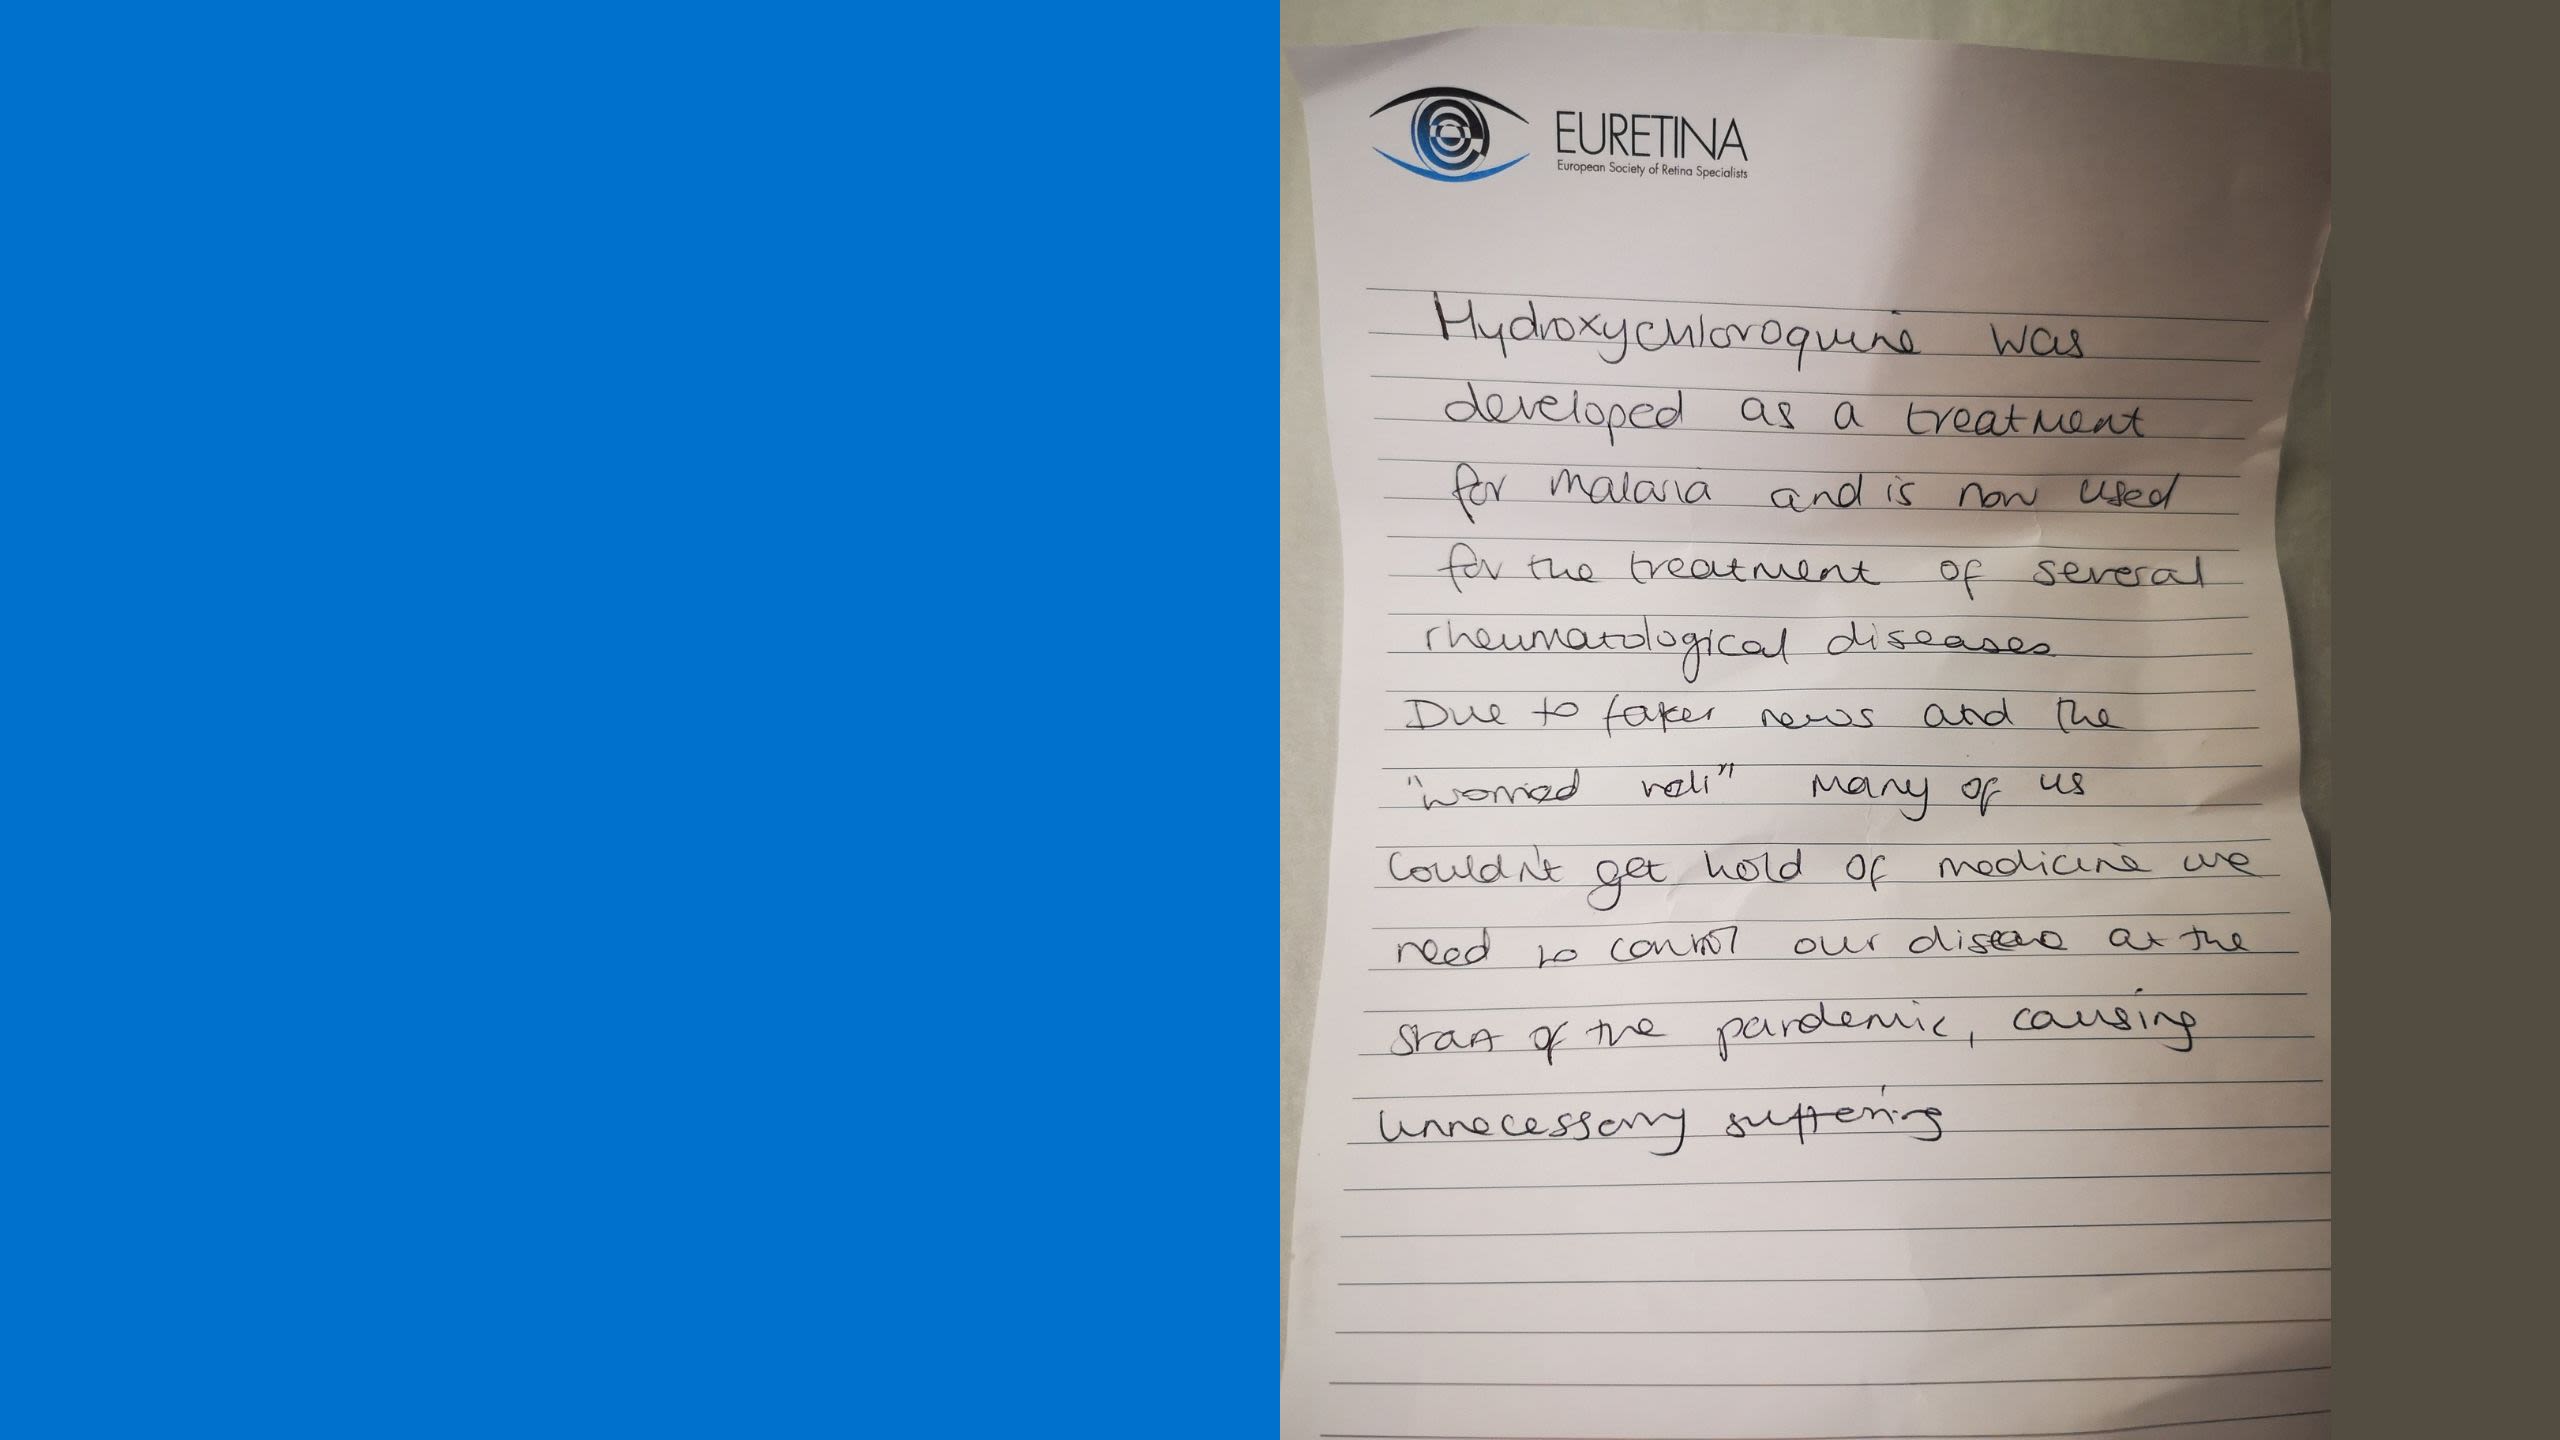 EURETINA
European Society of Retina Specialists
Hydroxychloroquine was
developed as a treatment
for malaria and is now used
for the treatment of several
rheumatological diseases
Due to faker news and the
"worried well" many of us
couldn't get hold of medicine we
need to control our disease at the
start of the pandemic, causing
unnecessary suffering